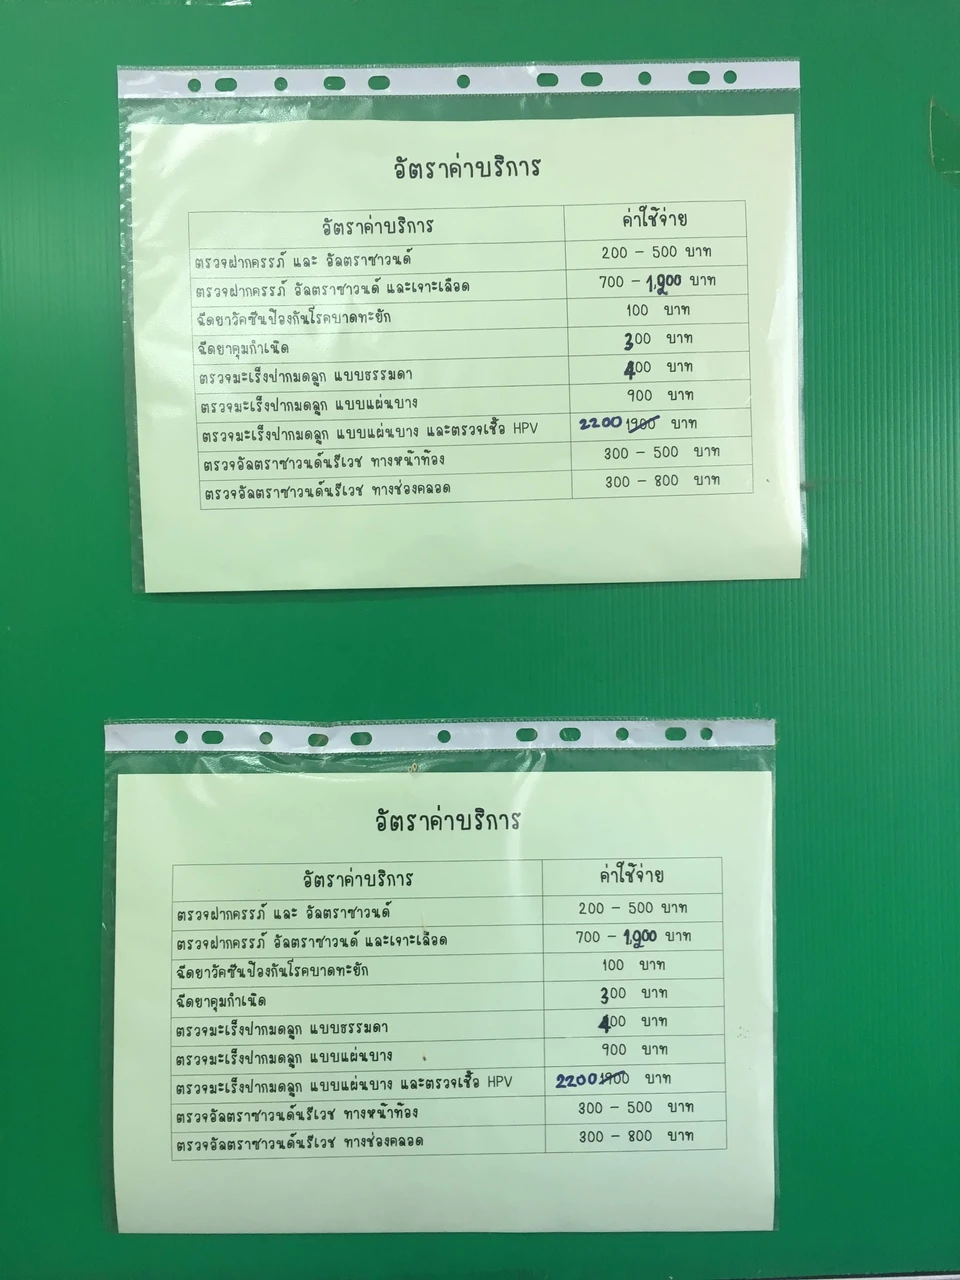 อัตราค่าบริการ
อัตราค่าบริการ ค่าใช้จ่าย
ตรวจฝากครรภ์ และ อัลตราซาวนด์ 200 - 500 บาท
ตรวจฝากครรภ์ อัลตราซาวนด์ และเจาะเลือด 700 - 1,200 บาท
ฉีดยาวัคซีนป้องกันโรคบาดทะยัก 100 บาท
ฉีดยาคุมกำเนิด 300 บาท
ตรวจมะเร็งปากมดลูก แบบธรรมดา 400 บาท
ตรวจมะเร็งปากมดลูก แบบแผ่นบาง 900 บาท
ตรวจมะเร็งปากมดลูก แบบแผ่นบาง และตรวจเชื้อ HPV 2200 1900 บาท
ตรวจอัลตราซาวนด์นรีเวช ทางหน้าท้อง 300 - 500 บาท
ตรวจอัลตราซาวนด์นรีเวช ทางช่องคลอด 300 - 800 บาท
อัตราค่าบริการ
อัตราค่าบริการ ค่าใช้จ่าย
ตรวจฝากครรภ์ และ อัลตราซาวนด์ 200 - 500 บาท
ตรวจฝากครรภ์ อัลตราซาวนด์ และเจาะเลือด 700 - บาท
ฉีดยาวัคซีนป้องกันโรคบาดทะยัก 100 บาท
ฉีดยาคุมกำเนิด 300 บาท
ตรวจมะเร็งปากมดลูก แบบธรรมดา 400 บาท
ตรวจมะเร็งปากมดลูก แบบแผ่นบาง 900 บาท
ตรวจมะเร็งปากมดลูก แบบแผ่นบาง และตรวจเชื้อ HPV 2200 1900 บาท
ตรวจอัลตราซาวนด์นรีเวช ทางหน้าท้อง 300 - 500 บาท
ตรวจอัลตราซาวนด์นรีเวช ทางช่องคลอด 300 - 800 บาท